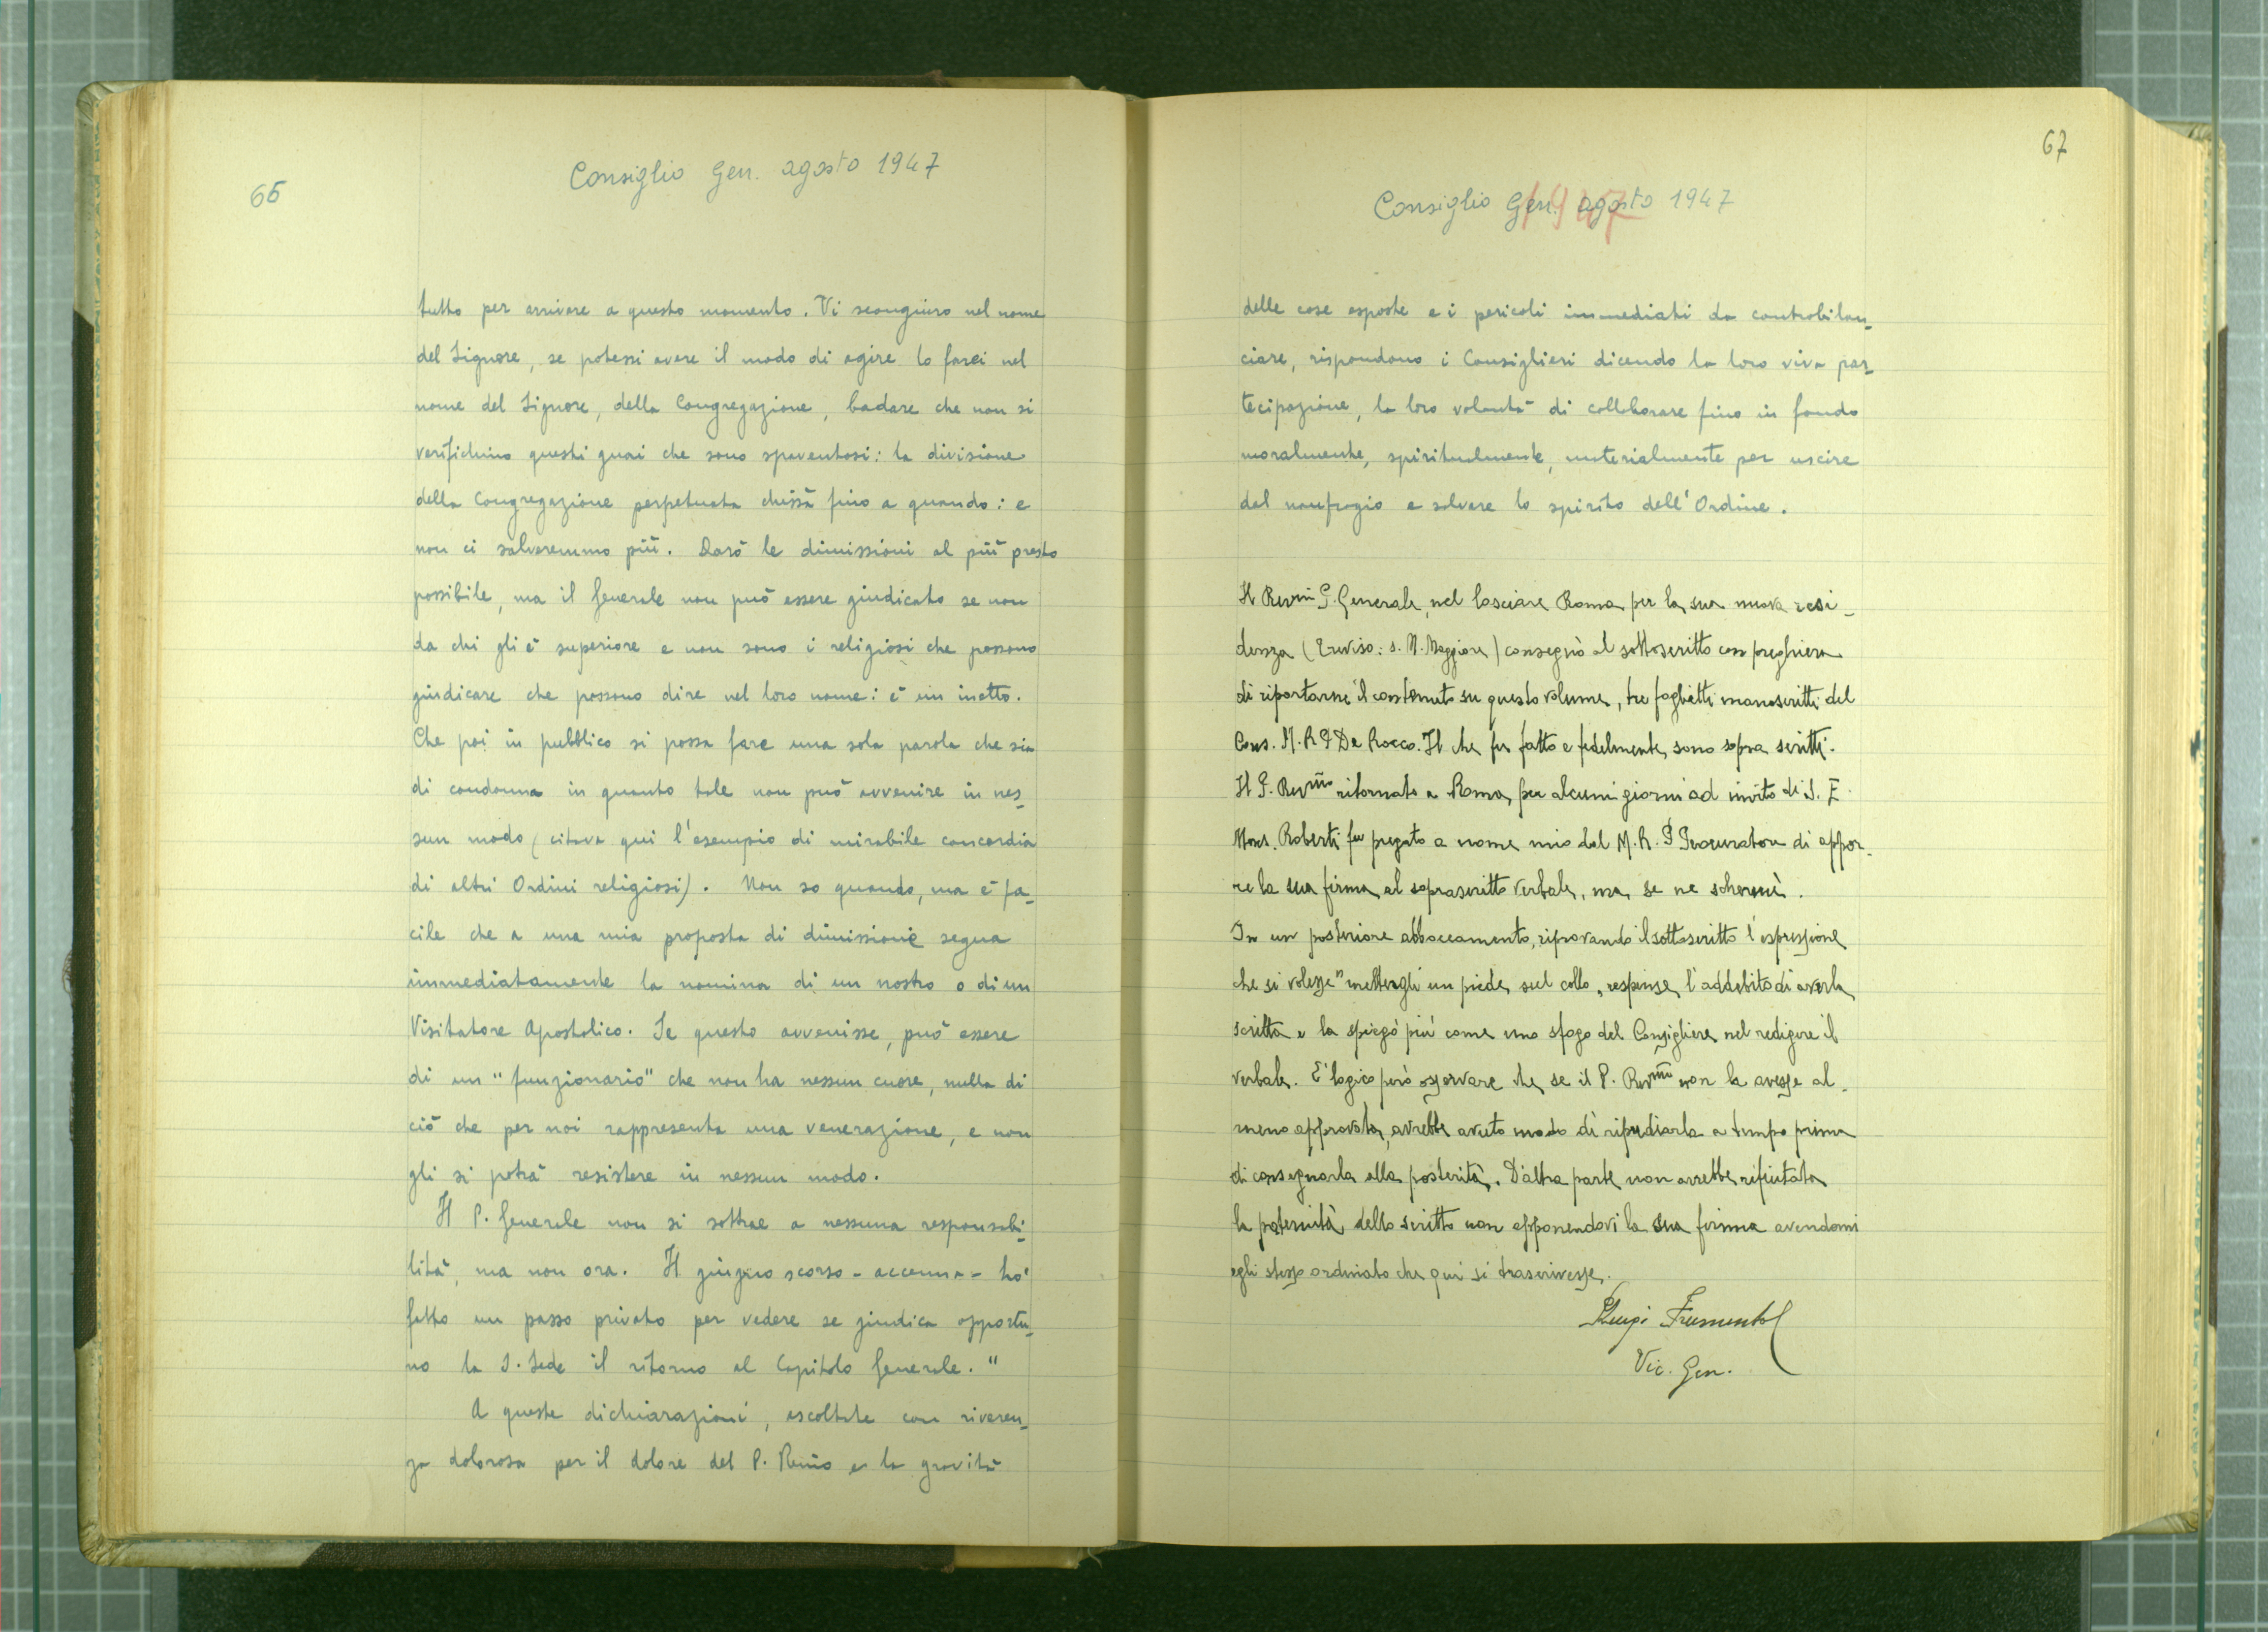 66
Consiglio Gen. agosto 1947
tutto per arrivare a questo momento. Vi scongiuro nel nome
del Signore, se potessi avere il modo di agire lo farei nel
nome del Signore, della Congregazione, badare che non si
verifichino questi guai che sono spaventosi: la divisione
della Congregazione perpetuata chissà fino a quando: e
non ci salveremmo più. Darò le dimissioni al più presto
possibile, ma il Generale non può essere giudicato se non
da chi gli è superiore e non sono i religiosi che possono
giudicare che possono dire nel loro nome: è un inetto.
Che poi in pubblico si possa fare una sola parola che sia
di condanna in quanto tale non può avvenire in nes_
sun modo (citava qui l'esempio di mirabile concordia
di altri Ordini religiosi). Non so quando, ma è fa_
cile che a una mia proposta di dimissione segua
immediatamente la nomina di un nostro o di un
Visitatore Apostolico. Se questo avvenisse, può essere
di un "funzionario" che non ha nessun cuore, nulla di
ciò che per noi rappresenta una venerazione, e non
gli si potrà resistere in nessun modo.
Il P. Generale non si sottrae a nessuna responsabi_
lità, ma non ora. Il giugno scorso - accenna - ho
fatto un passo privato per vedere se giudica opportu_
no la S. Sede il ritorno al Capitolo Generale."
A queste dichiarazioni, ascoltate con riveren_
za dolorosa per il dolore del P. Rmo e la gravità
67
Consiglio Gen. agosto 1947
1947
delle cose esposte e i pericoli immediati da controbilan_
ciare, rispondono i Consiglieri dicendo la loro viva par_
tecipazione, la loro volontà di collaborare fino in fondo
moralmente, spiritualmente, materialmente per uscire
dal naufragio e salvare lo spirito dell'Ordine.
Il Revmi P. Generale, nel lasciare Roma per la sua nuova resi_
denza (Treviso: S. M. Maggiore) consegnò al sottoscritto con preghiera
di riportarne il contenuto su questo volume, tre foglietti manoscritti del
Cons. M. R. P De Rocco. Il che fu fatto e fedelmente sono sopra scritti.
Il P. Revmo ritornato a Roma per alcuni giorni ad invito di S. E.
Mons. Roberti fu pregato a nome mio dal M. R. P Procuratore di appor_
re la sua firma al soprascritto verbale, ma se ne schermì.
In un posteriore abboccamento, riprovando il sottoscritto l'espressione
che si volesse "mettergli un piede sul collo" respinse l'addebito di averla
scritta e la spiegò più come uno sfogo del Consigliere nel redigere il
verbale. E' logico però osservare che se il P. Revmo non la avesse al_
meno approvata, avrebbe avuto modo di ripudiarla a tempo prima
di consegnarla alla posterità. D'altra parte non avrebbe rifiutata
la paternità dello scritto non apponendovi la sua firma avendomi
egli stesso ordinato che qui si trascrivesse.
P Luigi Frumento
Vic. Gen.